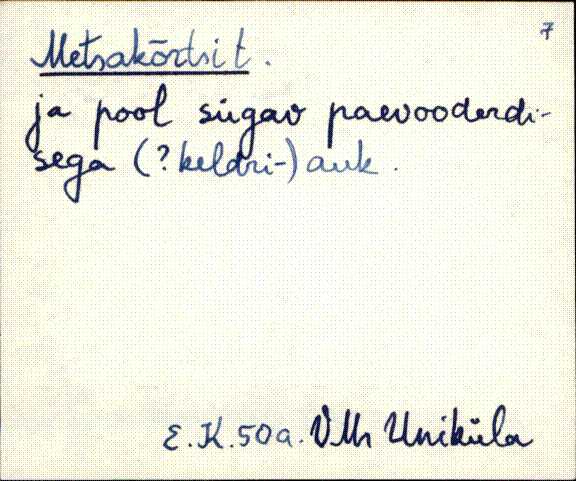 7
Metsakõrtsit.
ja pool sügav paevooderdi-
sega (? keldri-) auk.
E.K. 50 a. VMr Uniküla